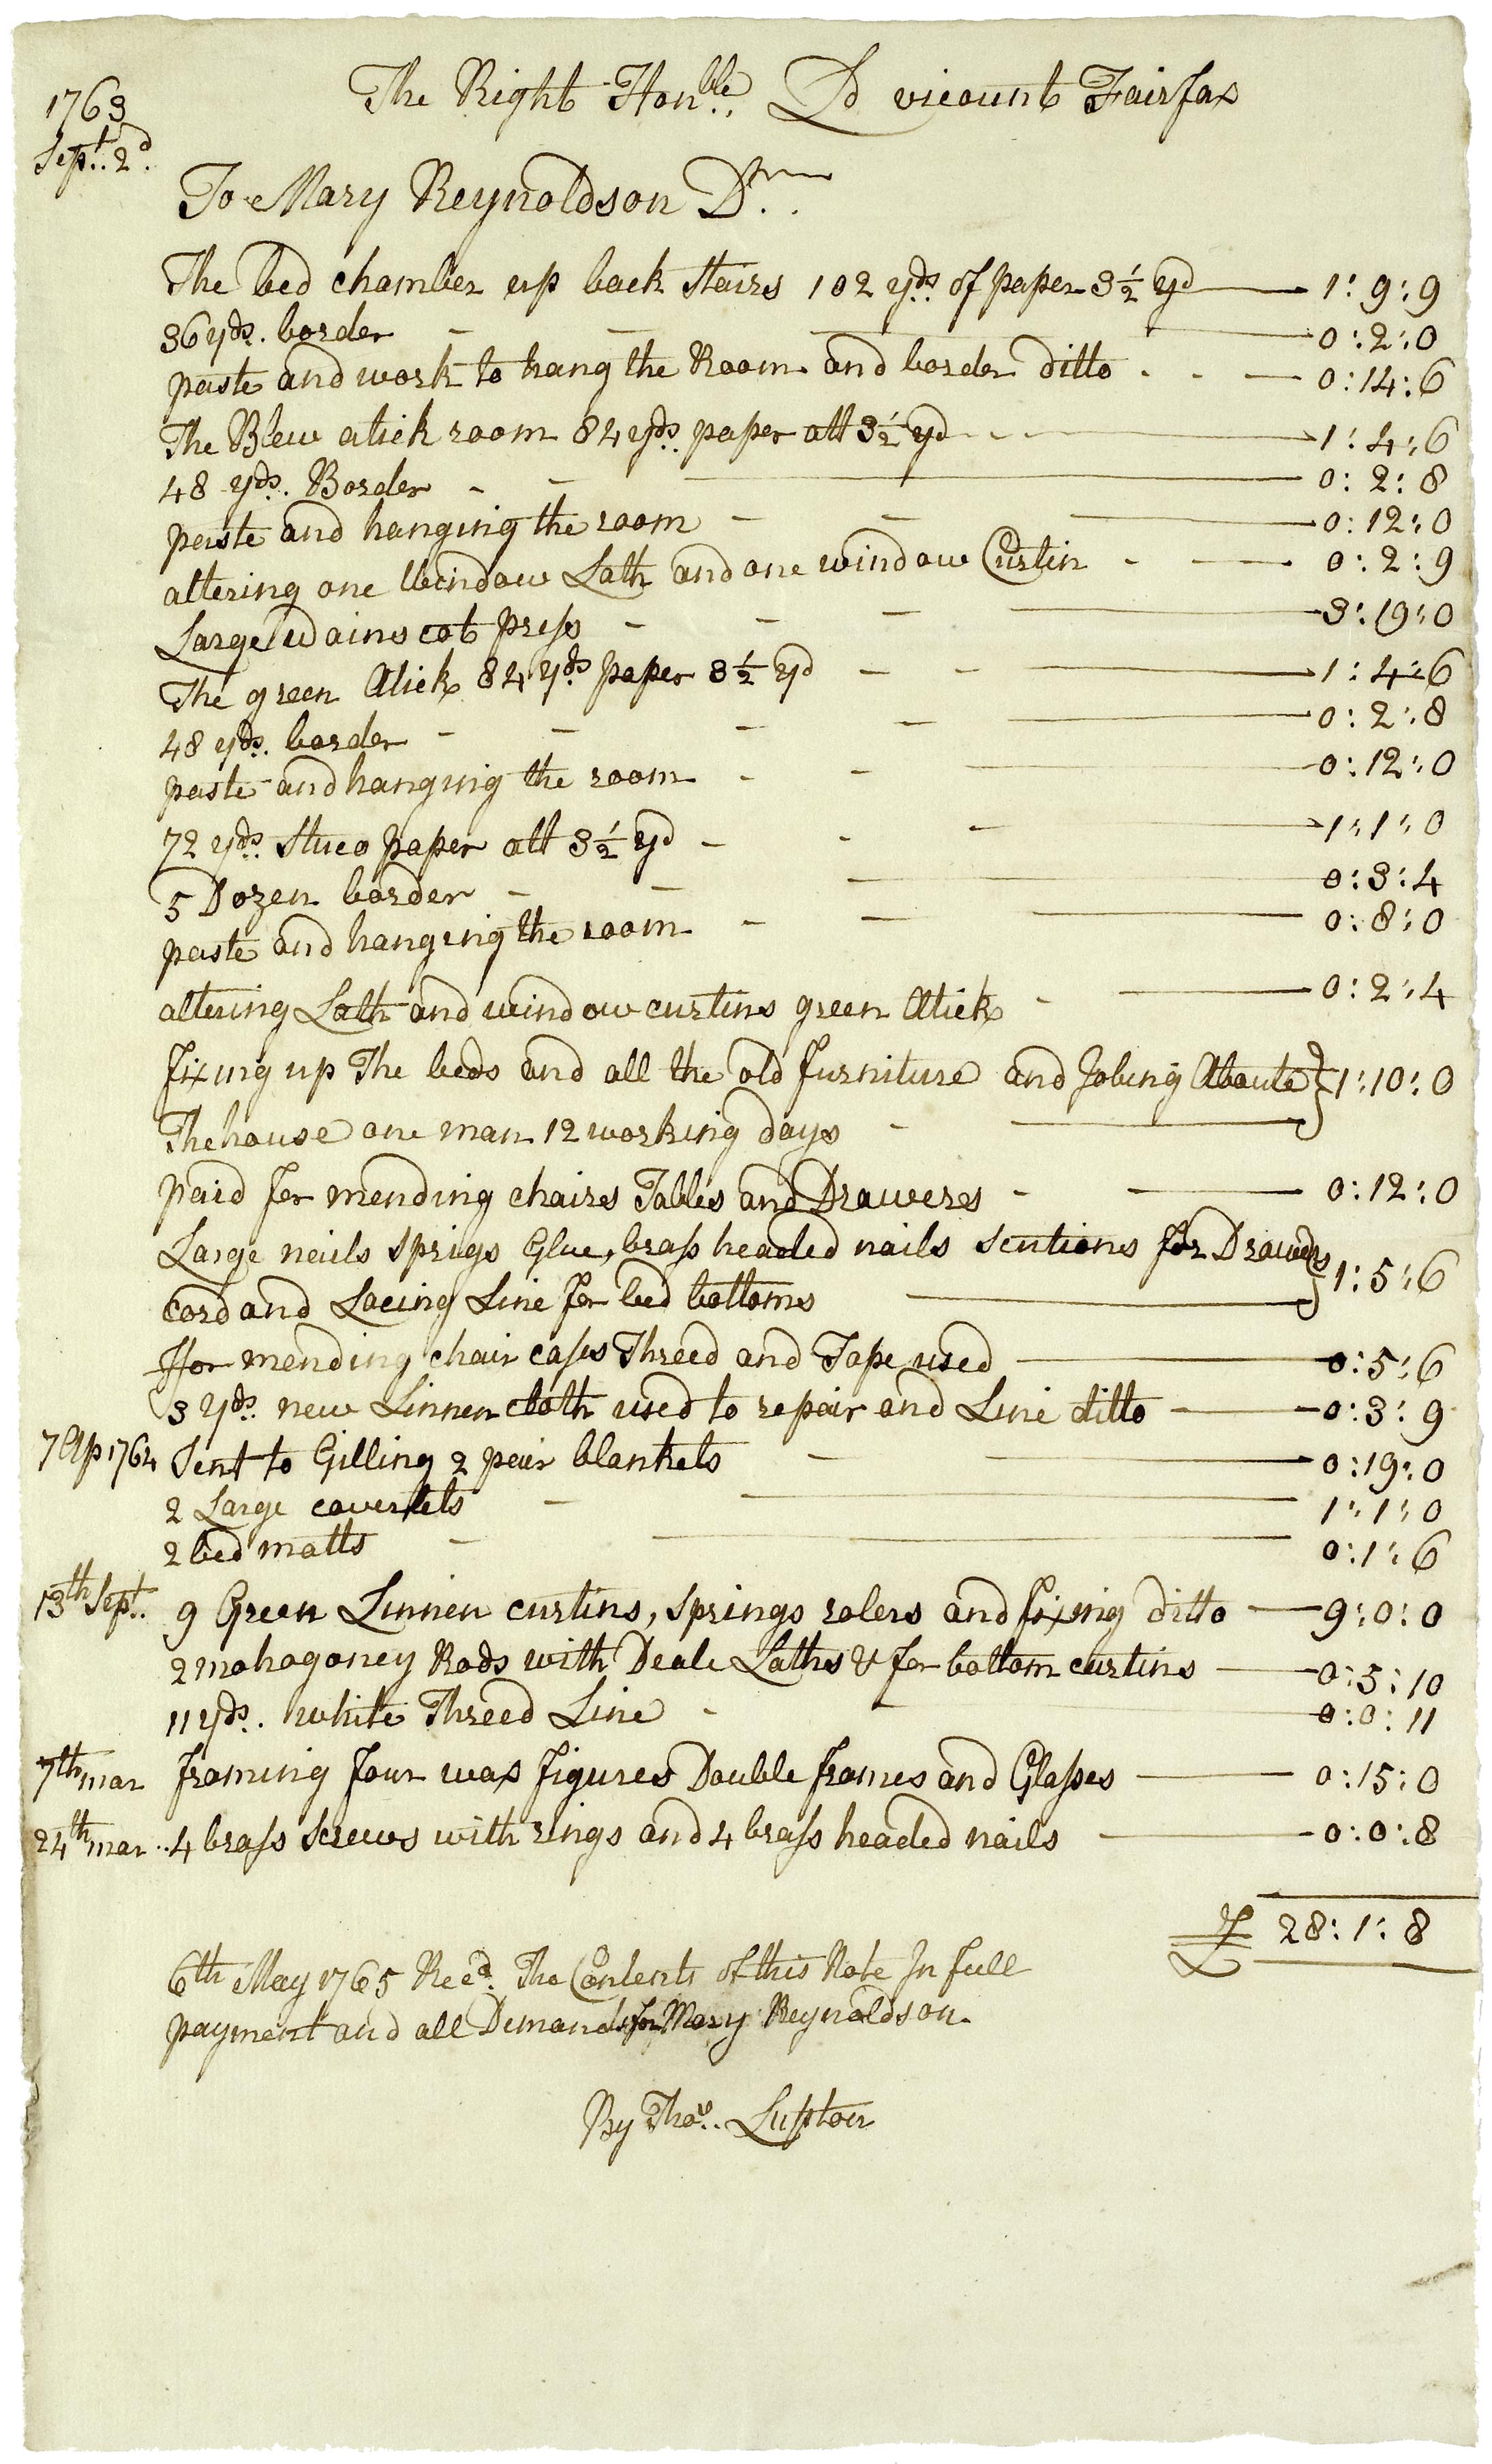 The Right Honble. Ld vicount Fairfax
1763
Sept. 2d.
To Mary Reynoldson Dr.
The bed chamber up back Staires 102 yds. of paper 3½ yd 1:9:9
36 yds. border 0:2:0
paste and work to hang the Room and border ditto 0:14:6
The Blew atick room 84 yds. paper att 3½ yd 1:4:6
48 yds. Border 0:2:8
paste and hanging the room 0:12:0
altering one Window Lath and one window Curtin 0:2:9
Large Wainscot press 3:19:0
The green Atick 84 yds paper 3½ yd 1:4:6
48 yds. border 0:2:8
paste and hanging the room 0:12:0
72 yds. Stuco paper att 3½ yd 1:1:0
5 Dozen border 0:3:4
paste and hanging the room 0:8:0
altering Lath and window curtins green Atick 0:2:4
fixing up The beds and all the old furniture and Jobing Aboute 1:10:0
The house one man 12 working days
paid for mending chaires Tables and Draweres 0:12:0
Large nails sprigs Glue, brass headed nails Scutions for Drawers 1:5:6
cord and Lacing Line for bed bottoms
ffor mending chair cases Threed and Tape used 0:5:6
3 yds. new Linnen cloth used to repair and Line ditto 0:3:9
7 Ap 1764 Sent to Gilling 2 pair blankets 0:19:0
2 Large coverlets 1:1:0
2 bed matts 0:1:6
13th Sept. 9 Green Linnen curtins, Springs rolers and fixing ditto 9:0:0
2 mahogoney Rods with Deale Laths & for bottom curtins 0:5:10
11 yds. white Threed Line 0:0:11
7th mar framing four wax figures Double frames and Glasses 0:15:0
24th mar. 4 brass Screws with rings and 4 brass headed nails 0:0:8
£ 28:1:8
6th May 1765 Recd. The Contents of this Note In full
payment and all Demands for Mary Reynoldson.
By Thos. Lupton